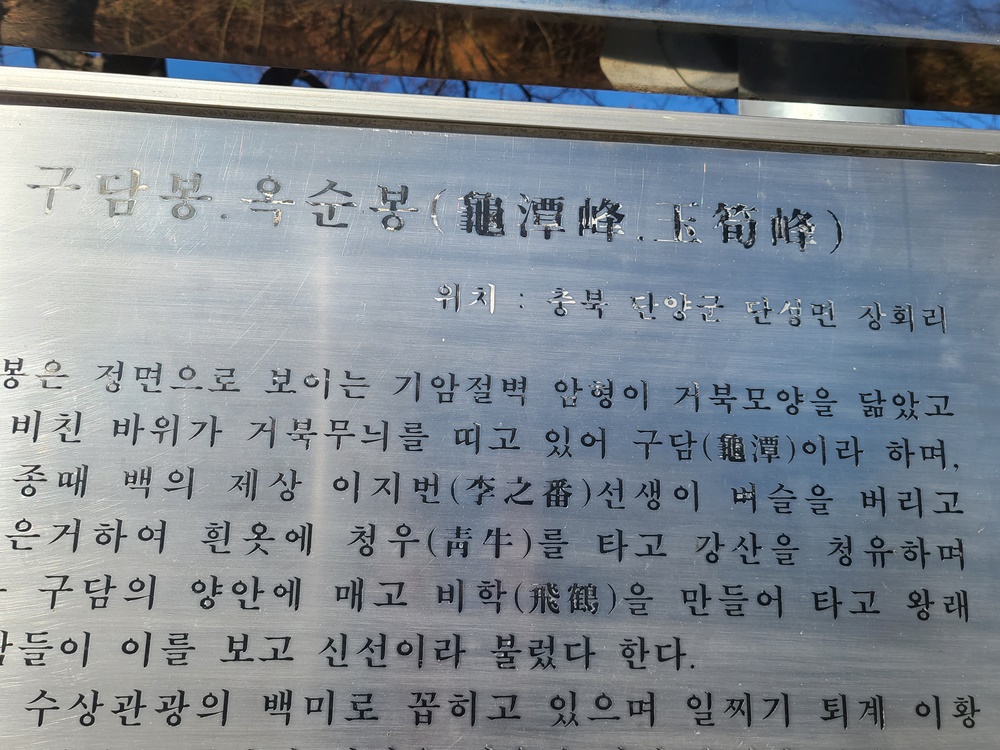 구담봉.옥순봉(龜潭峰.玉筍峰)
위치 : 충북 단양군 단성면 장회리
봉은 정면으로 보이는 기암절벽 암형이 거북모양을 닮았고
비친 바위가 거북무늬를 띠고 있어 구담(龜潭)이라 하며,
종때 백의 제상 이지번(李之番)선생이 벼슬을 버리고
은거하여 흰옷에 청우(靑牛)를 타고 강산을 청유하며
구담의 양안에 매고 비학(飛鶴)을 만들어 타고 왕래
람들이 이를 보고 신선이라 불렀다 한다.
수상관광의 백미로 꼽히고 있으며 일찌기 퇴계 이황